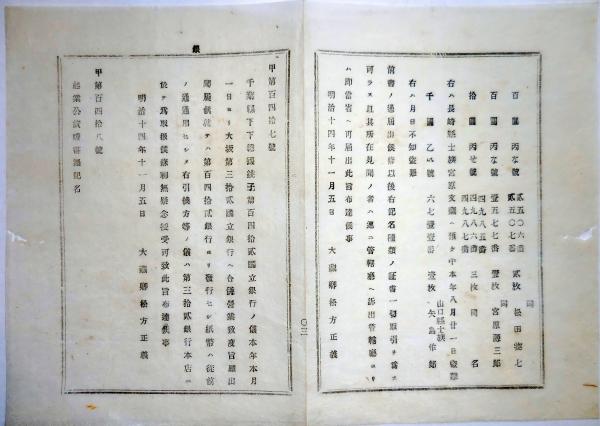 百圓 丙な號 貳五〇六番 貳枚 同 松田
貳五〇七番
百圓 丙な號 壹五七七番 壹枚 同 宮原 三郎
四九八五番
拾圓 丙せ號 四九八六番 三枚 同名
四九八七番
右ハ長崎縣士族宮原 預ケ中本年八月廿一日盜難
千圓 乙い號 六七壹壹番 壹枚 山口縣士族 矢島作郎
右ハ月日不知盜難
前書ノ通届出候條以後右記名種類ノ証書一切取引ヲ爲ス
可ラス且其所在見聞ノ者ハ速ニ管轄廳ヘ訴出管轄廳ヨリ
ハ即當省ヘ可届出此旨布達候事
明治十四年十一月五日 大藏卿松方正義
〇二
銀
甲第百四拾七號
千葉縣下下總國銚子第百四拾貳國立銀行ノ儀本年本月
一日ヨリ大坂第三拾貳國立銀行ヘ合併營業致度旨願出
聞届候就テハ第百四拾貳銀行ヨリ發行セシ紙幣ハ從前
ノ通通用セシメ右引換方等ノ儀ハ第三拾貳銀行本店ニ
於テ爲取扱候條無疑念授受可致此旨布達候事
明治十四年十一月五日 大藏卿松方正義
甲第百四拾八號
起業公債証書 記名